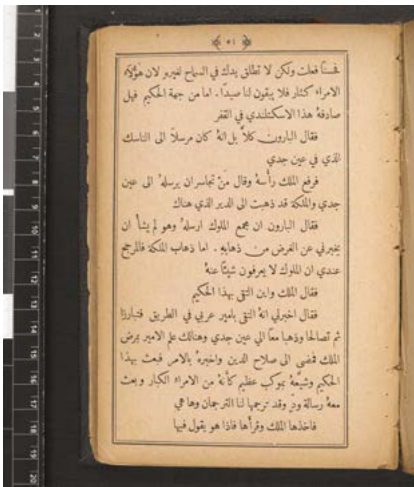 ٥١
فحسنًا فعلت ولكن لا تطلق يدك في السماح لغيره لان هؤلاء
الامراء كثار فلا يبقون لنا صيدًا. اما من جهة الحكيم فهل
صادفهُ هذا الاسكتلندي في القفر
فقال البارون كلاَّ بل انهُ كان مرسلاً الى الناسك
الذي في عين جدي
فرفع الملك رأسهُ وقال مَنْ تجاسر ان يرسلهُ الى عين
جدي والملكة قد ذهبت الى الدير الذي هناك
فقال البارون ان مجمع الملوك ارسلهُ وهو لم يشأ ان
يخبرني عن الغرض من ذهابهِ. اما ذهاب الملكة فالمرجح
عندي ان الملوك لا يعرفون شيئًا عنهُ
فقال الملك واين التقى بهذا الحكيم
فقال اخبرني انهُ التقى بامير عربي في الطريق فتبارزا
ثم تصالحا وذهبا معًا الى عين جدي وهنالك علم الامير بمرض
الملك فمضى الى صلاح الدين واخبرهُ بالامر فبعث بهذا
الحكيم وشيَّعهُ بموكب عظيم كأنهُ من الامراء الكبار وبعث
معهُ رسالة ودّ وقد ترجمها لنا الترجمان وها هي
فاخذها الملك وقرأها فاذا هو يقول فيها
1
2
3
4
5
6
7
8
9
10
11
12
13
14
15
16
17
18
19
20